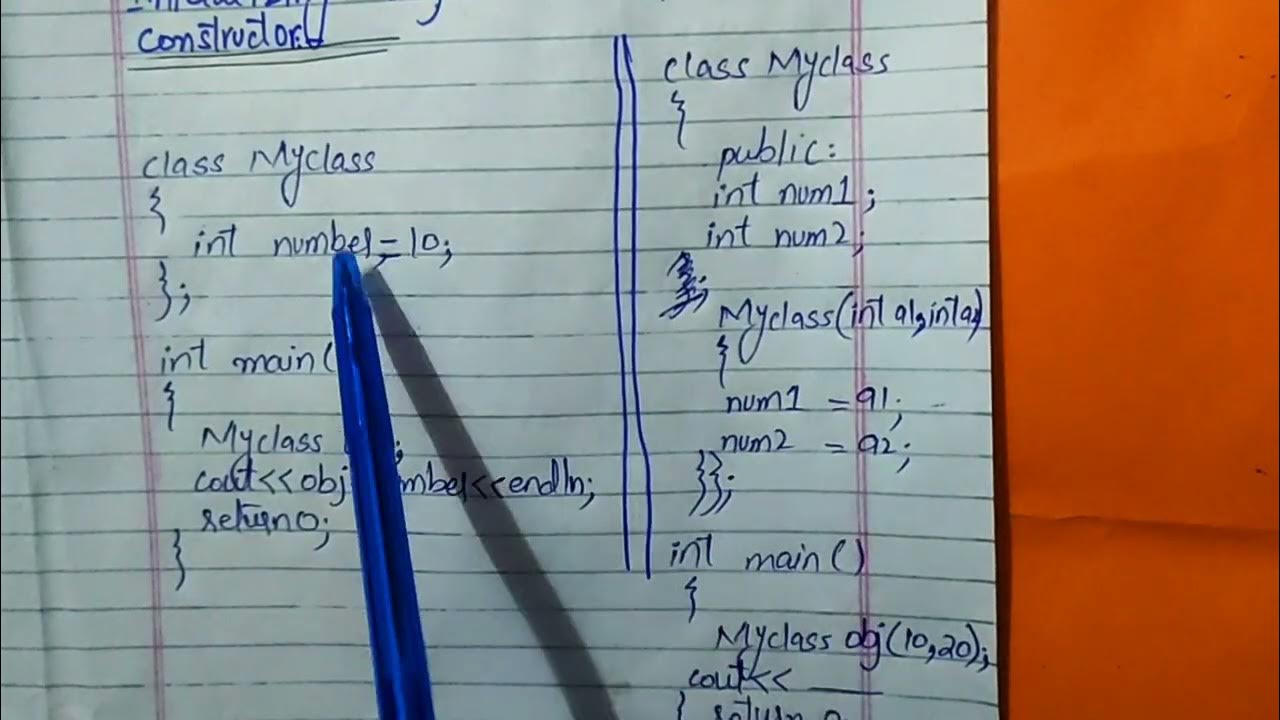 constructor
class Myclass
{
int number=10;
};
int main(
{
Myclass ;
cout<<obj mber<<endln;
return 0;
}
class Myclass
{
public:
int num1;
int num2;
Myclass(int a1,int a2)
{
num1 = a1;
num2 = a2;
}};
int main()
{
Myclass obj(10,20);
cout<< ____
{ return 0